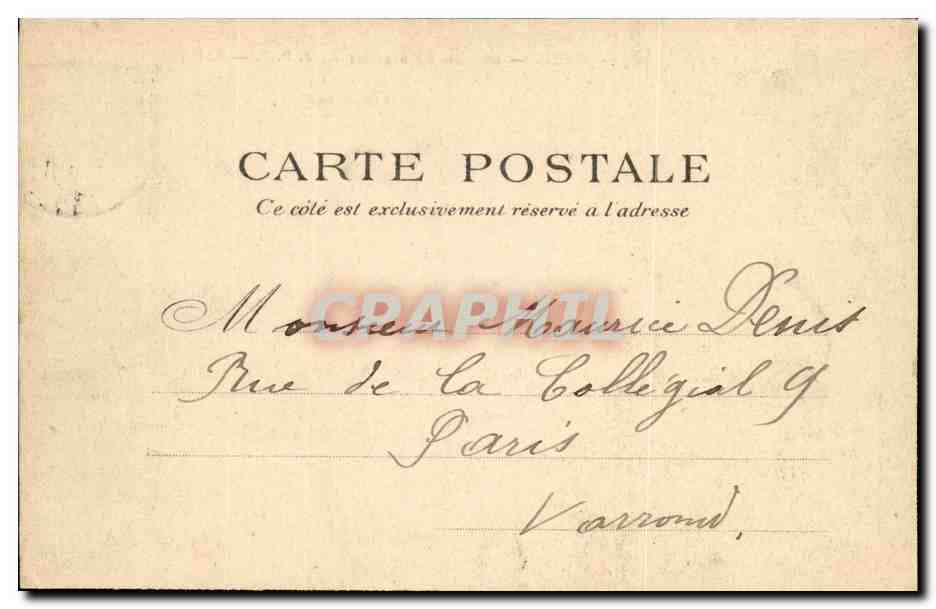 CARTE POSTALE
Ce côté est exclusivement réservé a l'adresse
CPAPHIL
Monsieur Maurice Denis
Rue de la Collégial 9
Paris